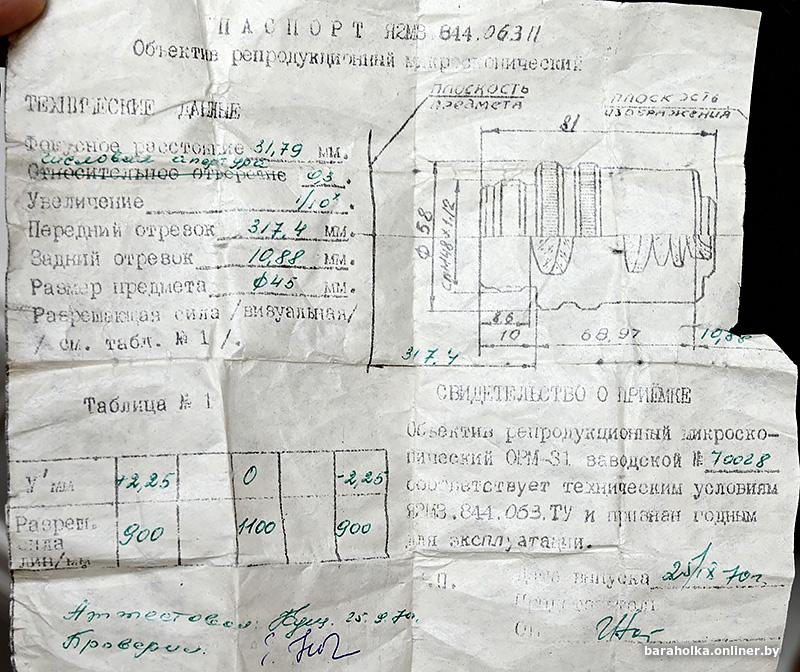 ПАСПОРТ Я2М3.844.063П
Объектив репродукционный микроскопический
ТЕХНИЧЕСКИЕ ДАННЫЕ
Фокусное расстояние 31,79 мм.
числовая апертура
Относительное отверстие 0,3.
Увеличение 1/10х.
Передний отрезок 317.4 мм.
Задний отрезок 10,88 мм.
Размер предмета ф45 мм.
Разрешающая сила /визуальная/
/ см. табл. № 1 /.
плоскость
предмета
плоскость
изображения
81
ф 58
СпМ48×1/2
8.6
10
68.97
10,88
317.4
Таблица № 1
У' мм +2,25 0 -2,25
Разреш.
сила
лин/мм
900 1100 900
СВИДЕТЕЛЬСТВО О ПРИЁМКЕ
Объектив репродукционный микроско-
пический ОРМ-31 заводской № 70028
соответствует техническим условиям
Я2М3.844.063.ТУ и признан годным
для эксплуатации.
М.П. Дата выпуска 25/IX 70г.
Аттестовал: 25.9.70.
Проверил:
baraholka.onliner.by